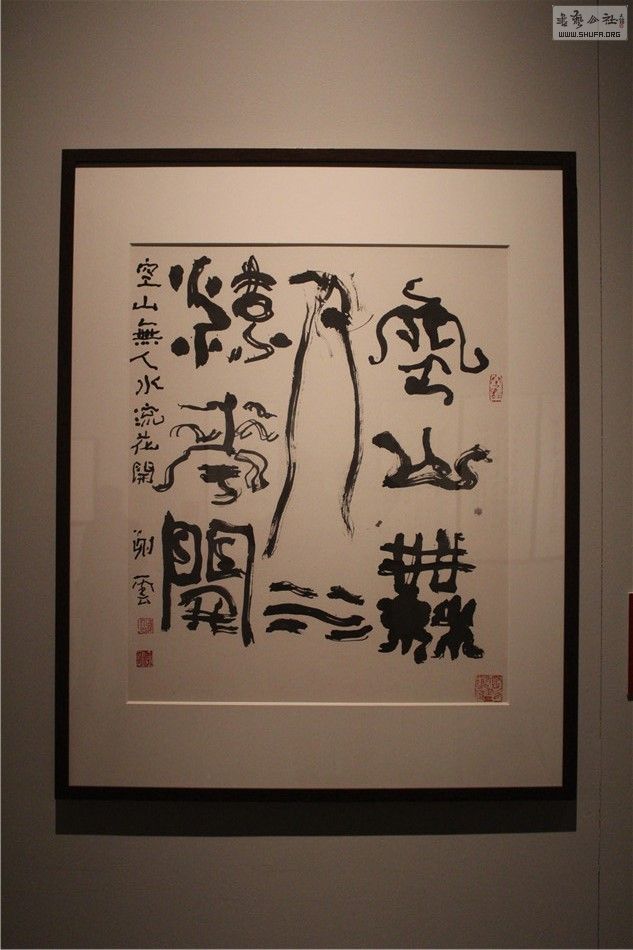 空山無
人水
流花開
空山無人水流花開 謝雲
書藝公社
WWW.SHUFA.ORG